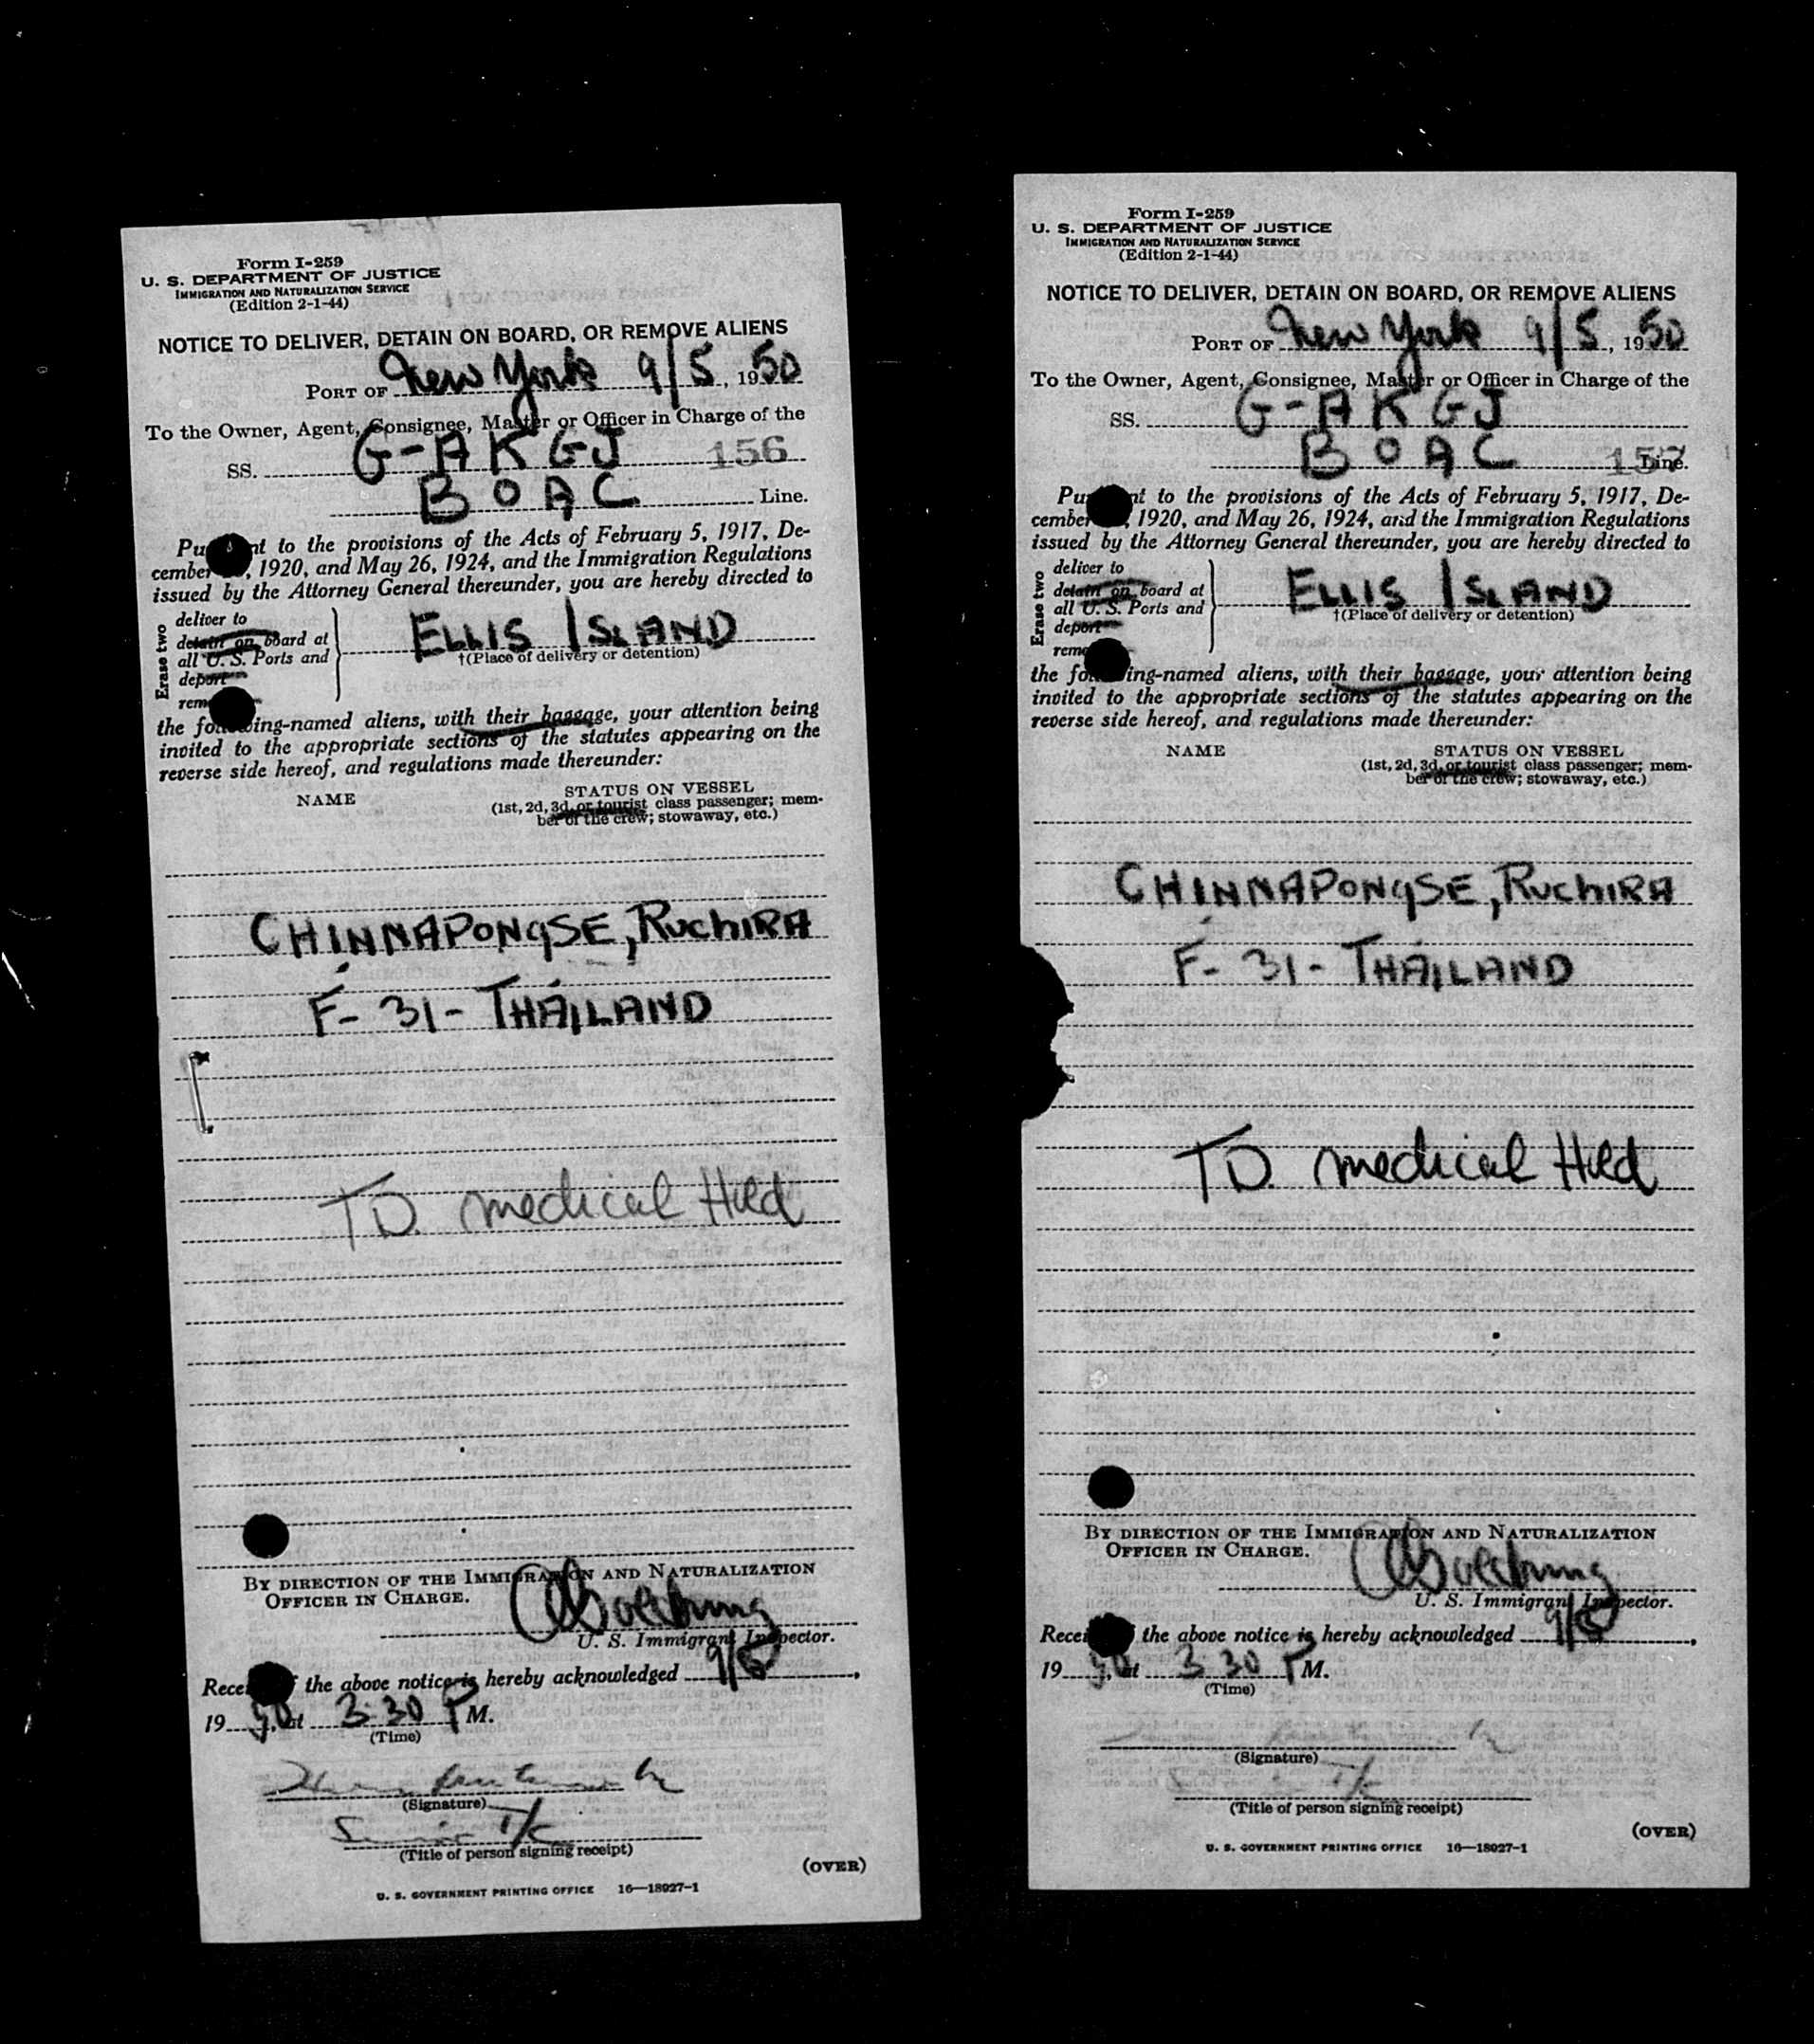 Form I-259
U. S. DEPARTMENT OF JUSTICE
IMMIGRATION AND NATURALIZATION SERVICE
(Edition 2-1-44)
NOTICE TO DELIVER, DETAIN ON BOARD, OR REMOVE ALIENS
PORT OF New York 9/5, 1950
To the Owner, Agent, Consignee, Master or Officer in Charge of the
SS. G-AKGJ 156
BOAC Line.
Pu nt to the provisions of the Acts of February 5, 1917, De-
cember , 1920, and May 26, 1924, and the Immigration Regulations
issued by the Attorney General thereunder, you are hereby directed to
Erase two
deliver to
detain on board at
all U. S. Ports and
deport
rem
ELLIS ISLAND
†(Place of delivery or detention)
the fo ing-named aliens, with their baggage, your attention being
invited to the appropriate sections of the statutes appearing on the
reverse side hereof, and regulations made thereunder:
NAME STATUS ON VESSEL
(1st, 2d, 3d, or tourist class passenger; mem-
ber of the crew; stowaway, etc.)
CHINNAPONGSE, RuchiRA
F- 31- THAILAND
TD. medical Hold
BY DIRECTION OF THE IMMIGRATION AND NATURALIZATION
OFFICER IN CHARGE.
U. S. Immigrant Inspector.
Rece f the above notice is hereby acknowledged 9/5,
1950, at 3:30 PM.
(Time)
(Signature)
Senior T/C
(Title of person signing receipt)
(OVER)
U. S. GOVERNMENT PRINTING OFFICE 16—18027-1
Form I-259
U. S. DEPARTMENT OF JUSTICE
IMMIGRATION AND NATURALIZATION SERVICE
(Edition 2-1-44)
NOTICE TO DELIVER, DETAIN ON BOARD, OR REMOVE ALIENS
PORT OF New York 9/5, 1950
To the Owner, Agent, Consignee, Master or Officer in Charge of the
SS. G-AKGJ
BOAC 157 Line.
Pu nt to the provisions of the Acts of February 5, 1917, De-
cember , 1920, and May 26, 1924, and the Immigration Regulations
issued by the Attorney General thereunder, you are hereby directed to
Erase two
deliver to
detain on board at
all U. S. Ports and
deport
remo
ELLIS ISLAND
†(Place of delivery or detention)
the fo ing-named aliens, with their baggage, your attention being
invited to the appropriate sections of the statutes appearing on the
reverse side hereof, and regulations made thereunder:
NAME STATUS ON VESSEL
(1st, 2d, 3d, or tourist class passenger; mem-
ber of the crew; stowaway, etc.)
CHINNAPONGSE, RuchiRA
F- 31- THAILAND
TD. medical Hold
BY DIRECTION OF THE IMMIGRATION AND NATURALIZATION
OFFICER IN CHARGE.
U. S. Immigrant Inspector.
Recei the above notice is hereby acknowledged 9/5,
1950, at 3 30 PM.
(Time)
(Signature)
T/C
(Title of person signing receipt)
(OVER)
U. S. GOVERNMENT PRINTING OFFICE 16—18027-1